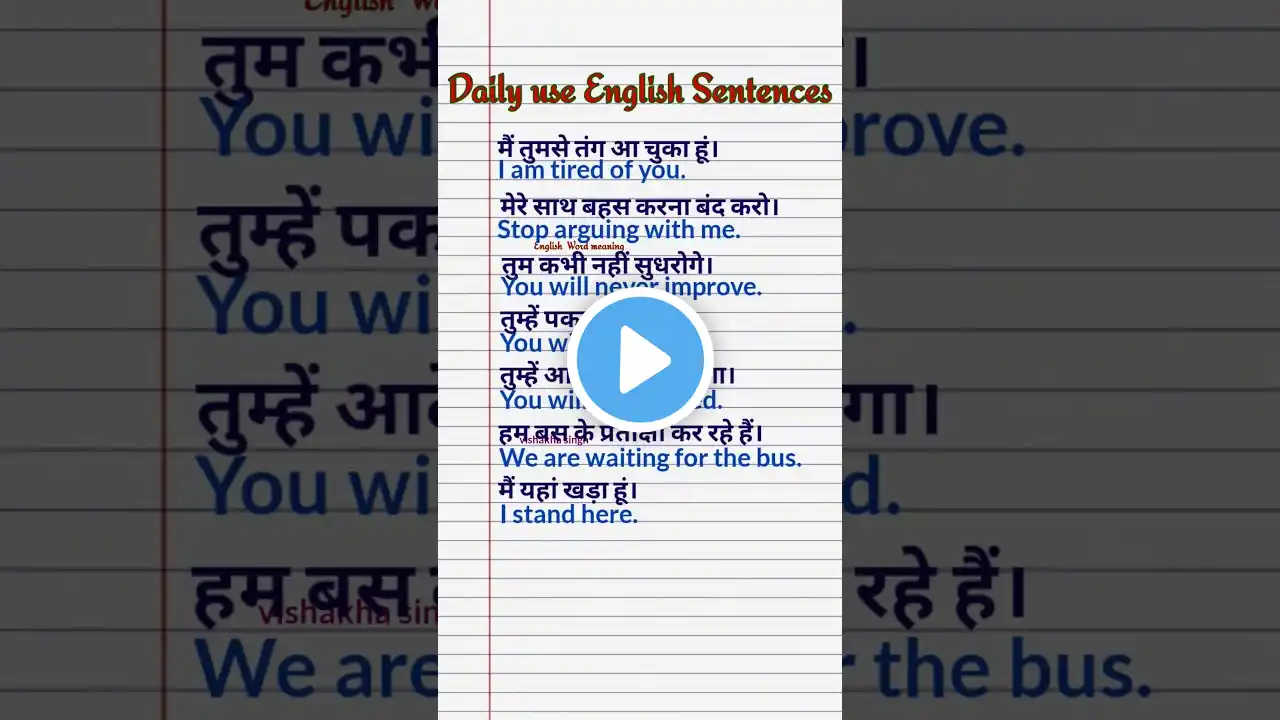 Daily use English Sentences
मैं तुमसे तंग आ चुका हूं।
I am tired of you.
मेरे साथ बहस करना बंद करो।
Stop arguing with me.
English Word meaning
तुम कभी नहीं सुधरोगे।
You will never improve.
तुम्हें
You
तुम्हें
You
हम बस के प्रतीक्षा कर रहे हैं।
vishakha singh
We are waiting for the bus.
मैं यहां खड़ा हूं।
I stand here.